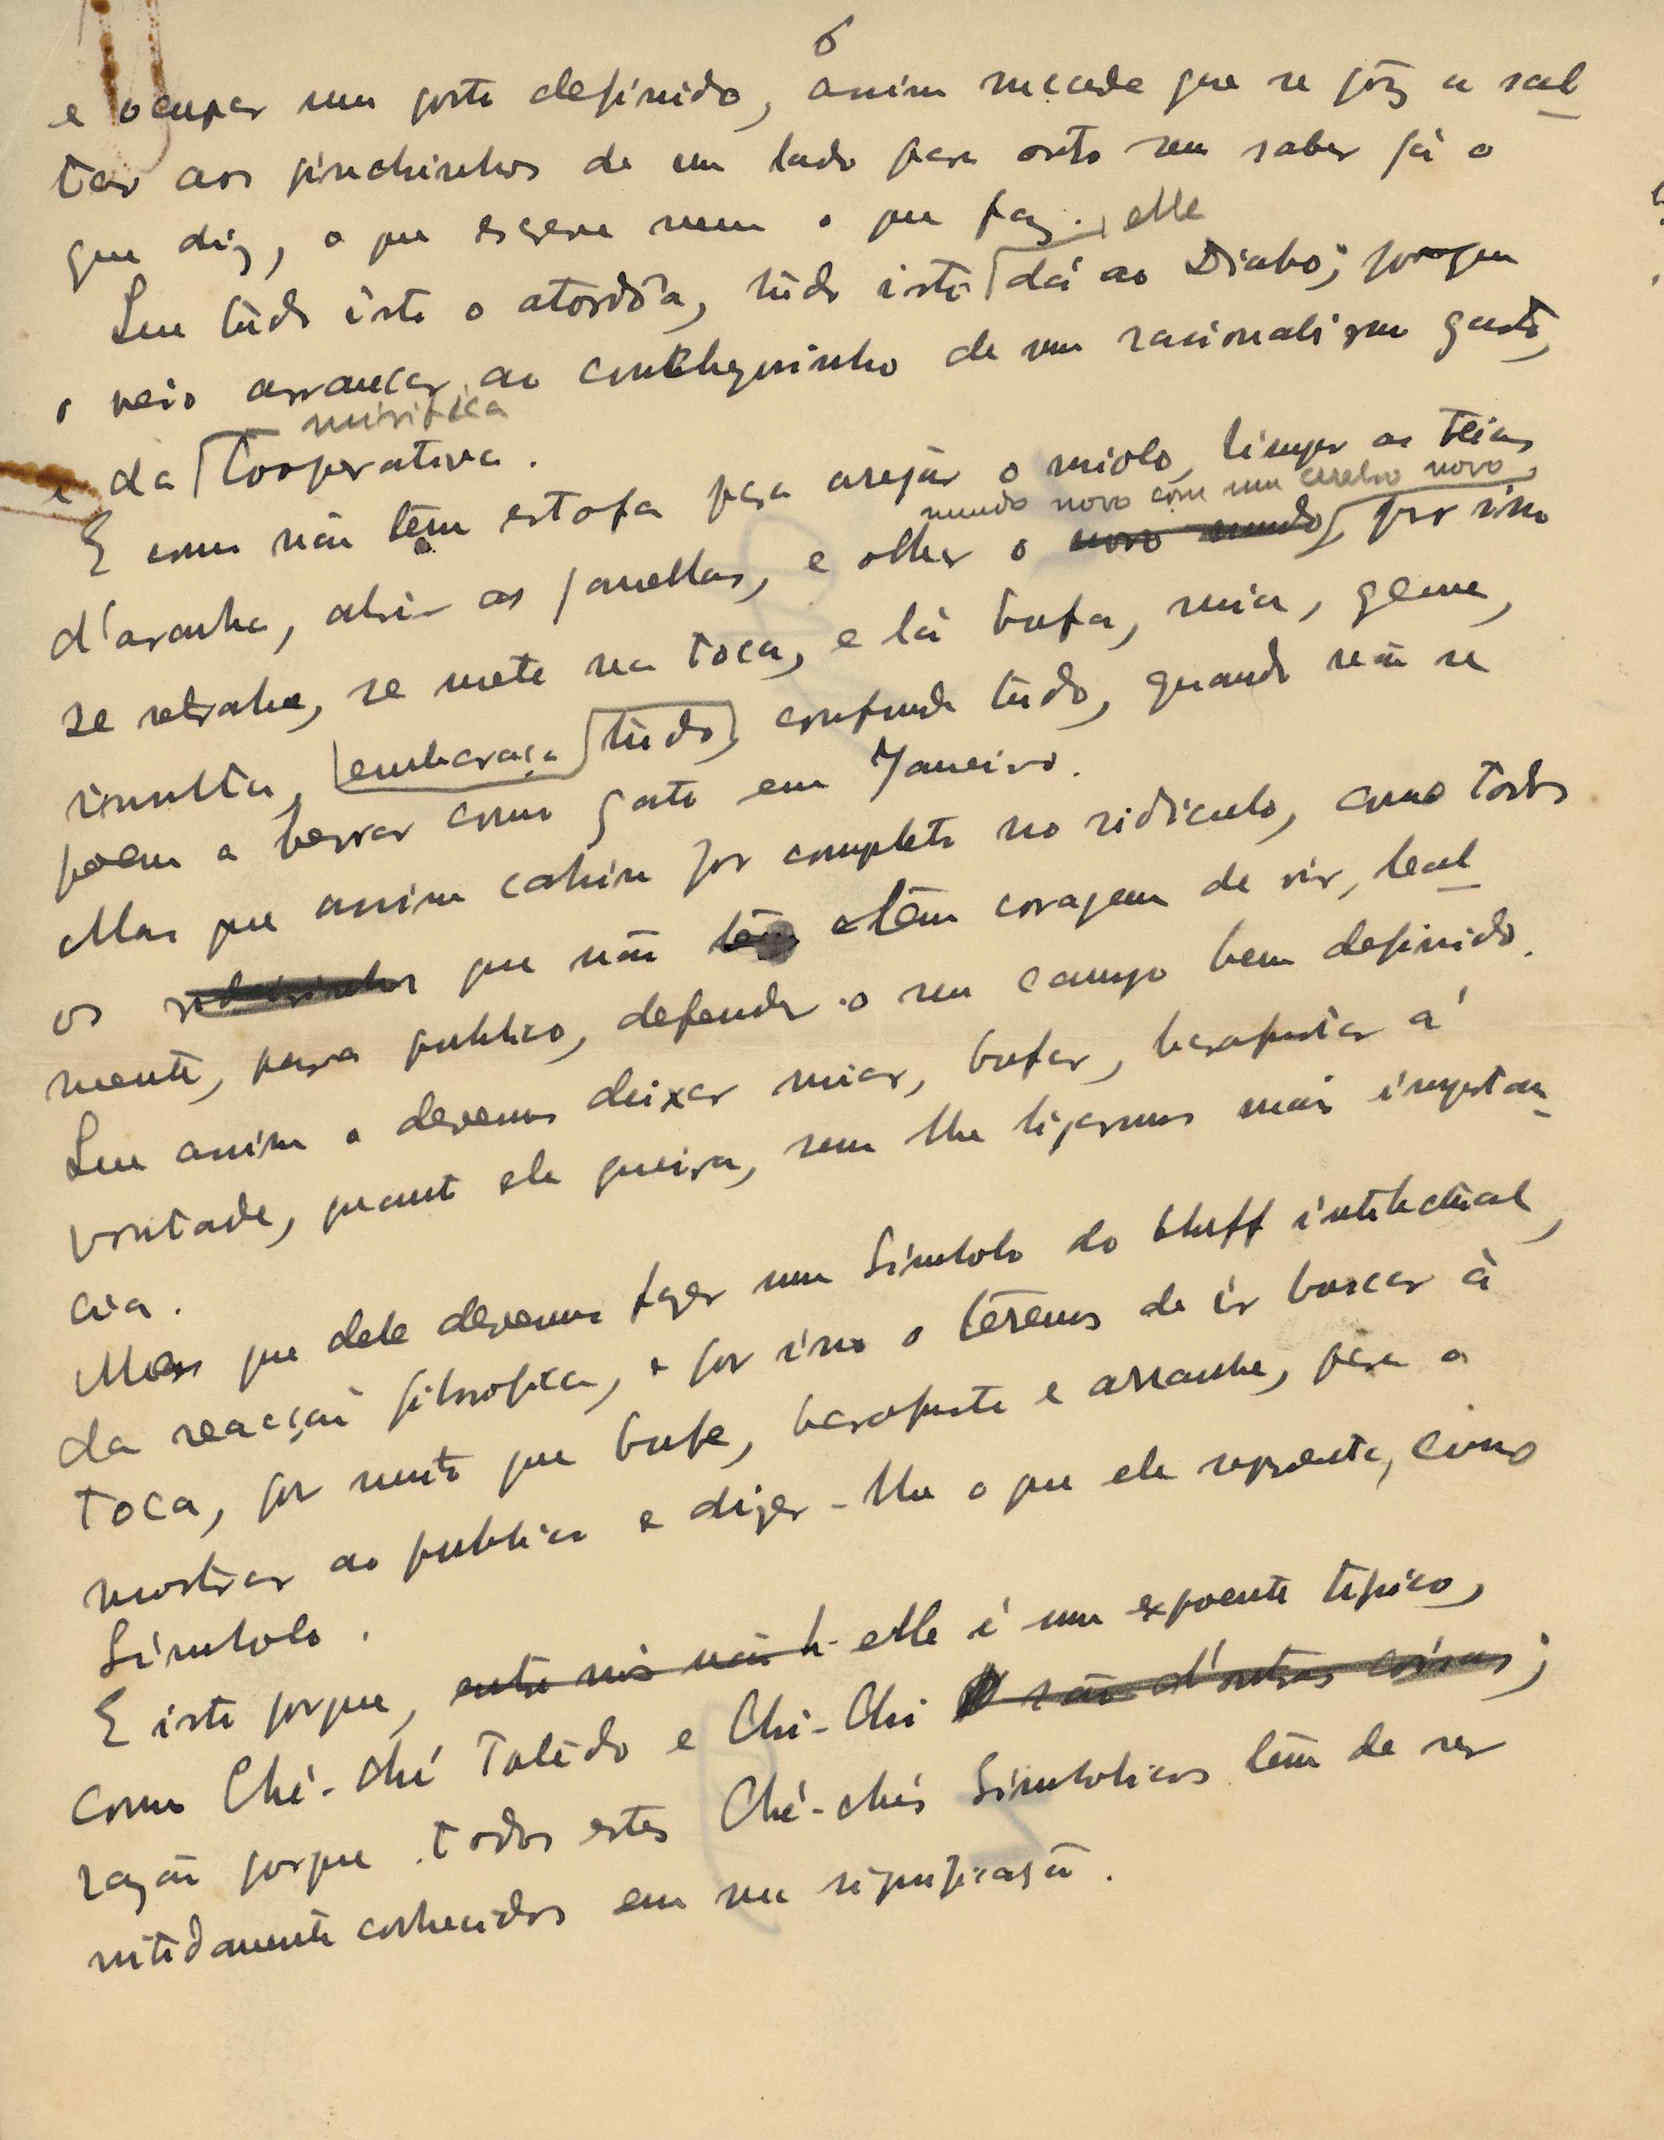 6
e ocupar um posto definido, assim succede que se põz a sal-
tar aos pinchinhos de um lado para outo sem saber já o
que diz, o que escreve nem o que faz.
Que túdo ísto o atordôa, túdo isto elle dá ao Diabo; porque
o veio arrancar ao concheguinho de um racionalismo gasto,
e da mirifica Cooperativa.
E como não têm estofa para arejár o miolo, limpar as teias
d'aranha, abrir as janellas, e olhar o novo mundo mundo novo com um cerebro novo, por isso
se retrahe, se mete na toca, e lá bufa, mia, geme,
insulta, embaraça túdo, confunde túdo, quando não se
poem a berrar como gato em Janeiro.
Mas que assim cahiu por completo no ridiculo, como todos
os que não têm têm coragem de vir, leal-
mente, para publico, defender o seu campo bem definido.
Que assim o devemos deixar miar, bufar, barafustar á
vontade, quanto ele queira, sem lhe ligarmos mais importan-
cia.
Mas que dele devemos fazer um Símbolo do bluff intelectual,
da reacção filosofica, e por ísso o têremos de ír buscar à
toca, por muito que bufe, barafuste e arranhe, para o
mostrar ao publico e dizer-lhe o que ele representa, como
Símbolo.
E isto porque, entre nós não h elle é um expoente tipico,
como Ché-ché Tolêdo e Chi-Chi são d'outras coisas;
razão porque todos estes Ché-chés Símbolicos têm de ser
nitidamente conhecidos em sua significação.